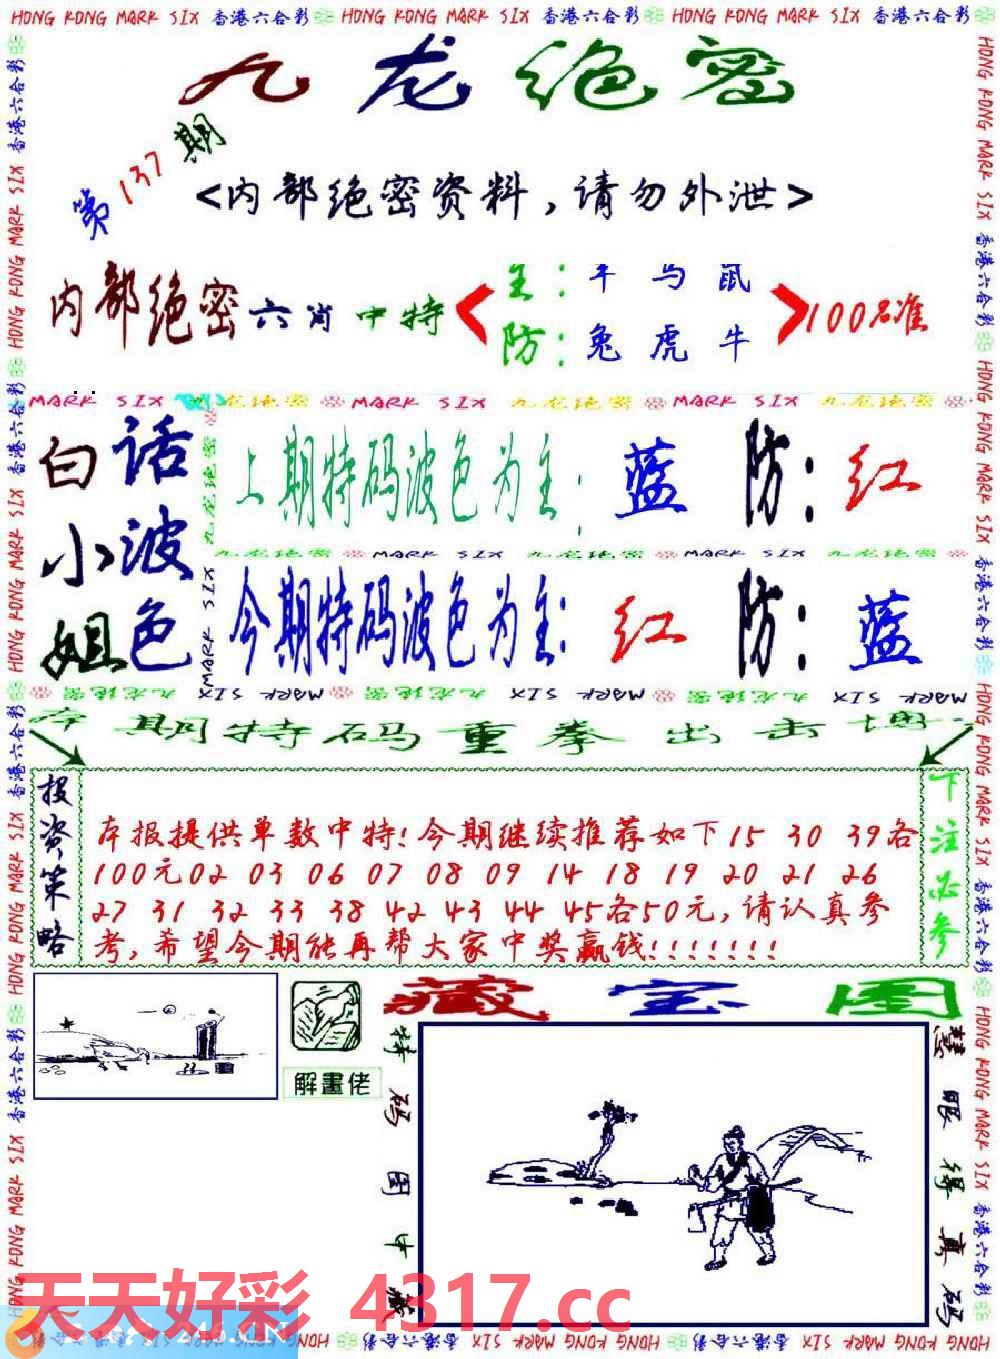 HONG KONG MARK SIX 香港六合彩 HONG KONG MARK SIX 香港六合彩 HONG KONG MARK SIX 香港六合彩
九龙绝密
第137期
<内部绝密资料,请勿外泄>
内部绝密六肖中特
主:羊马鼠
防:兔虎牛
100%准
MARK SIX 九龙绝密 MARK SIX 九龙绝密 MARK SIX 九龙绝密
白小姐
话波色
上期特码波色为主:蓝 防:红
九龙绝密 MARK SIX 九龙绝密 MARK SIX 九龙绝密
今期特码波色为主:红 防:蓝
九龙绝密 MARK SIX 九龙绝密 MARK SIX 九龙绝密 MARK SIX
本期特码重拳出击
投资策略
本报提供单数中特!今期继续推荐如下15 30 39各
100元02 03 06 07 08 09 14 18 19 20 21 26
27 31 32 33 38 42 43 44 45各50元,请认真参
考,希望今期能再帮大家中奖赢钱!!!!!!!
下注必参
藏宝图
解畫佬
特码图中藏
慧眼得真码
天天好彩 4317.cc
HONG KONG MARK SIX 香港六合彩